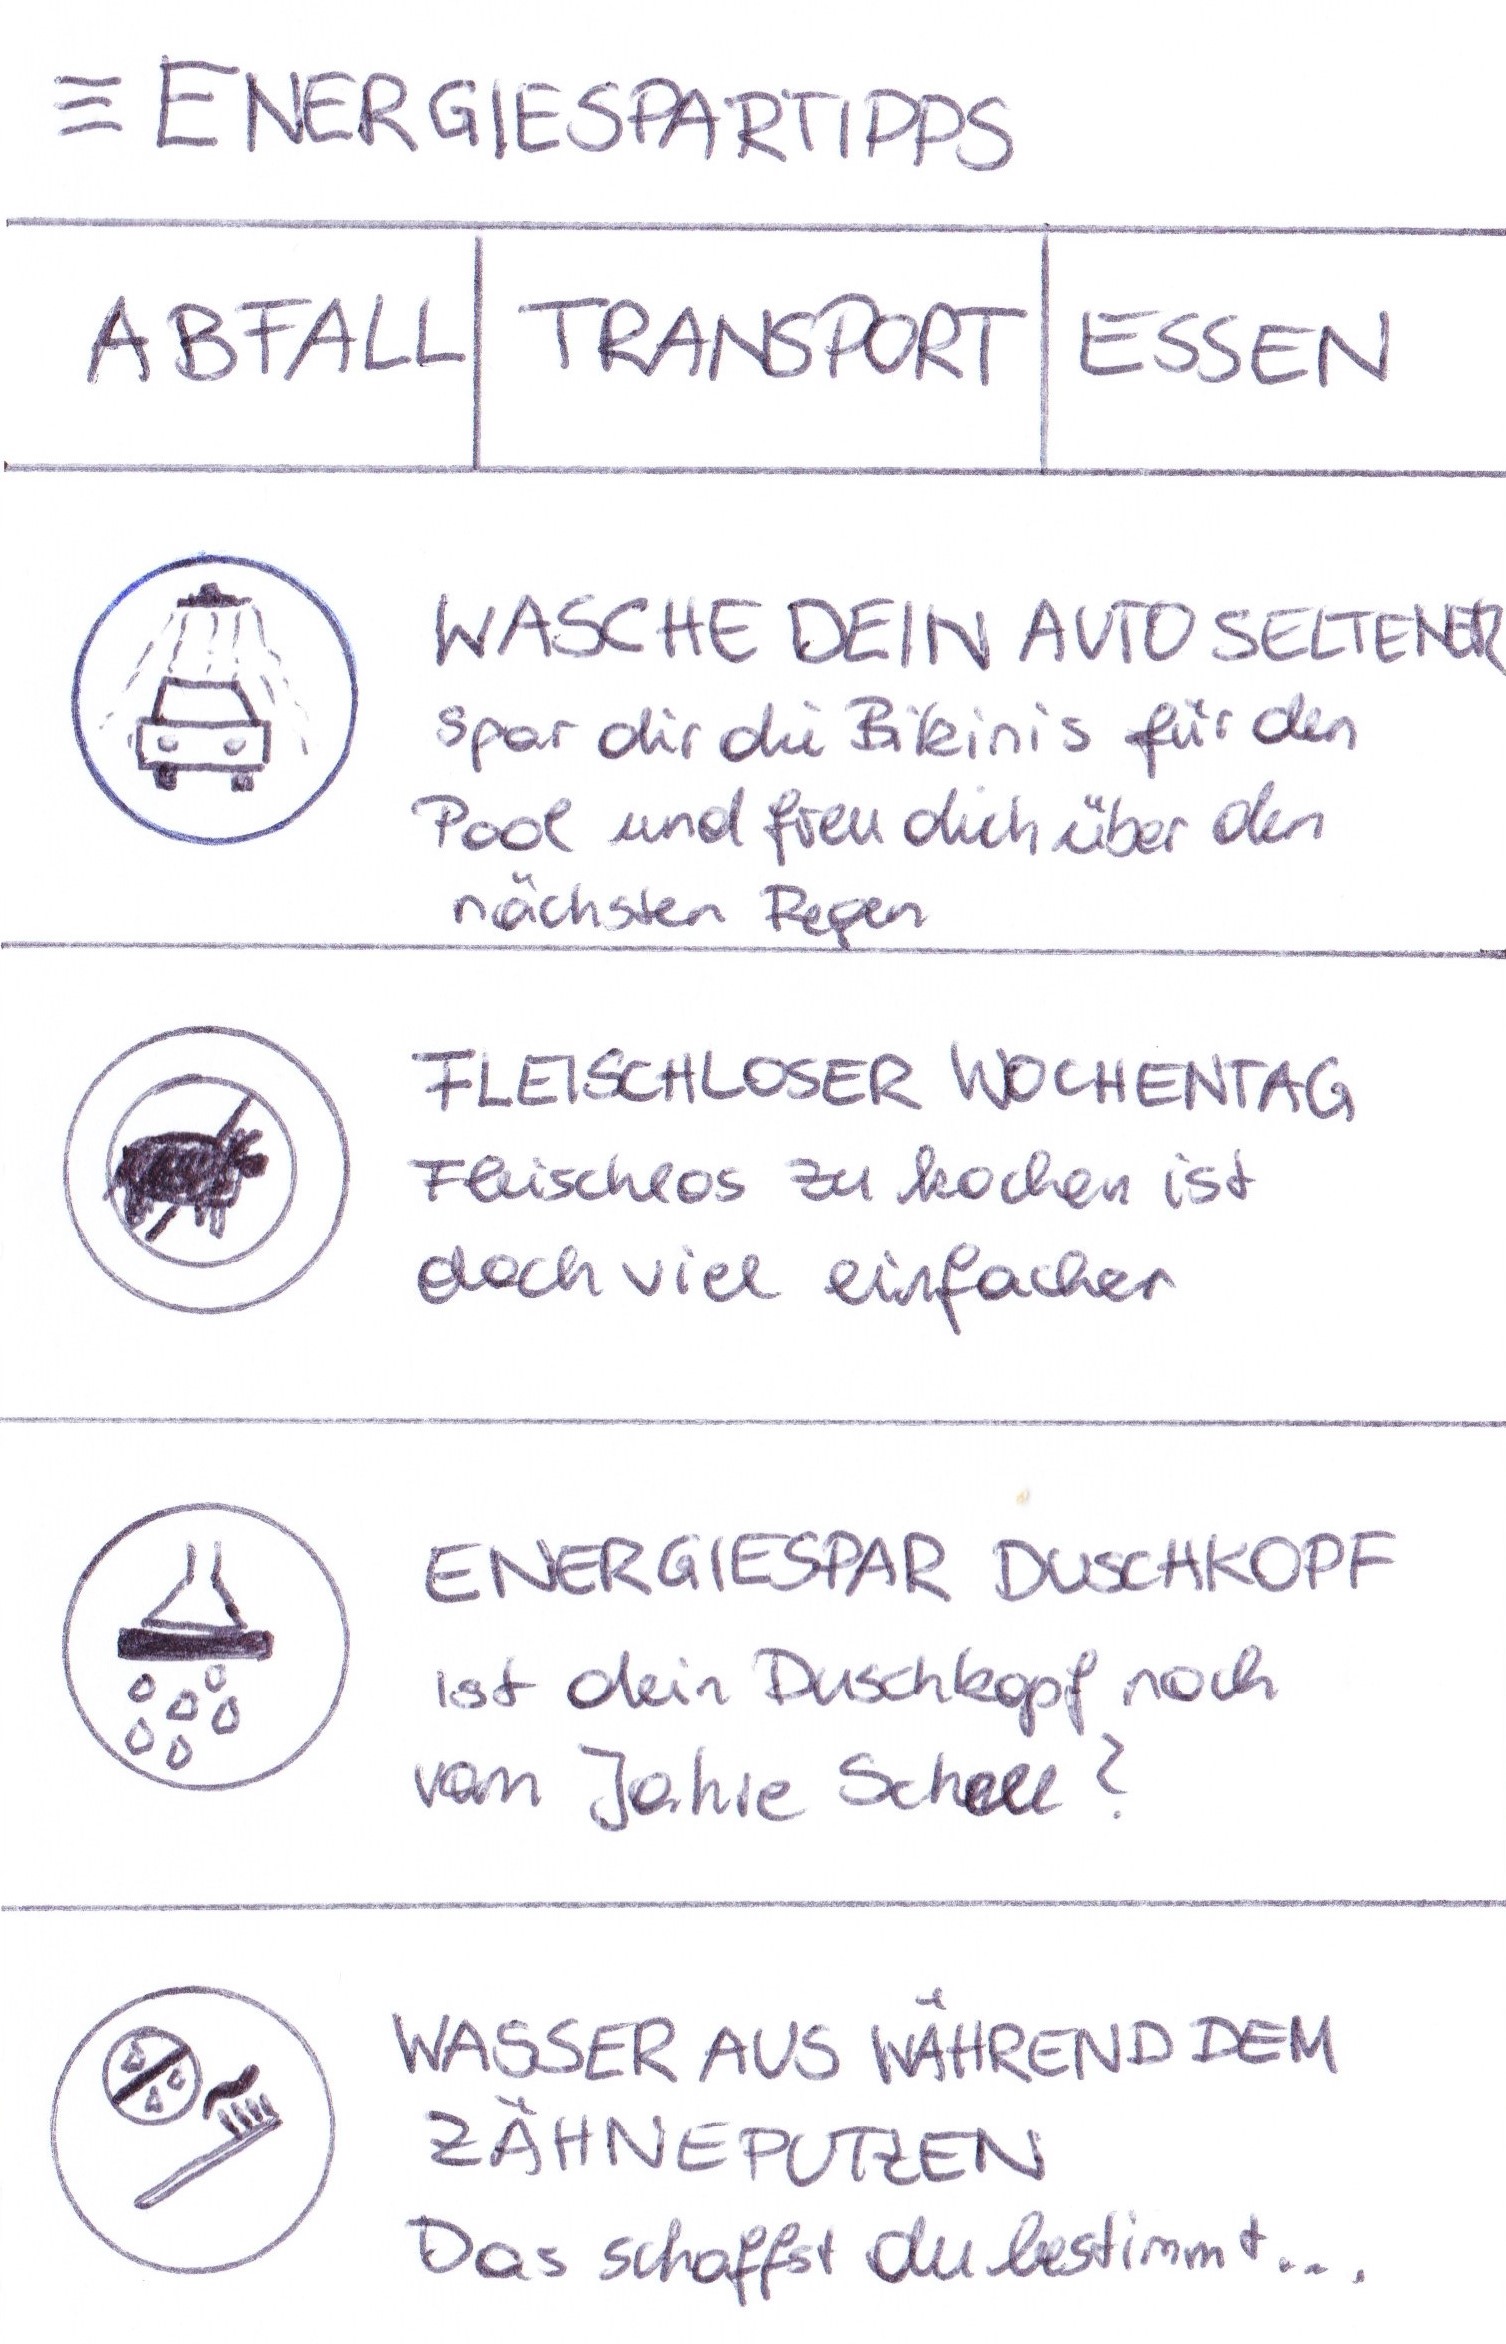 ENERGIESPARTIPPS
ABFALL TRANSPORT ESSEN
WASCHE DEIN AUTO SELTENER
spar dir die Bikinis für den
Pool und freu dich über den
nächsten Regen
FLEISCHLOSER WOCHENTAG
Fleischlos zu kochen ist
doch viel einfacher
ENERGIESPAR DUSCHKOPF
ist dein Duschkopf noch
vom Jahre Schnee?
WASSER AUS WÄHREND DEM
ZÄHNEPUTZEN
Das schaffst du bestimmt...